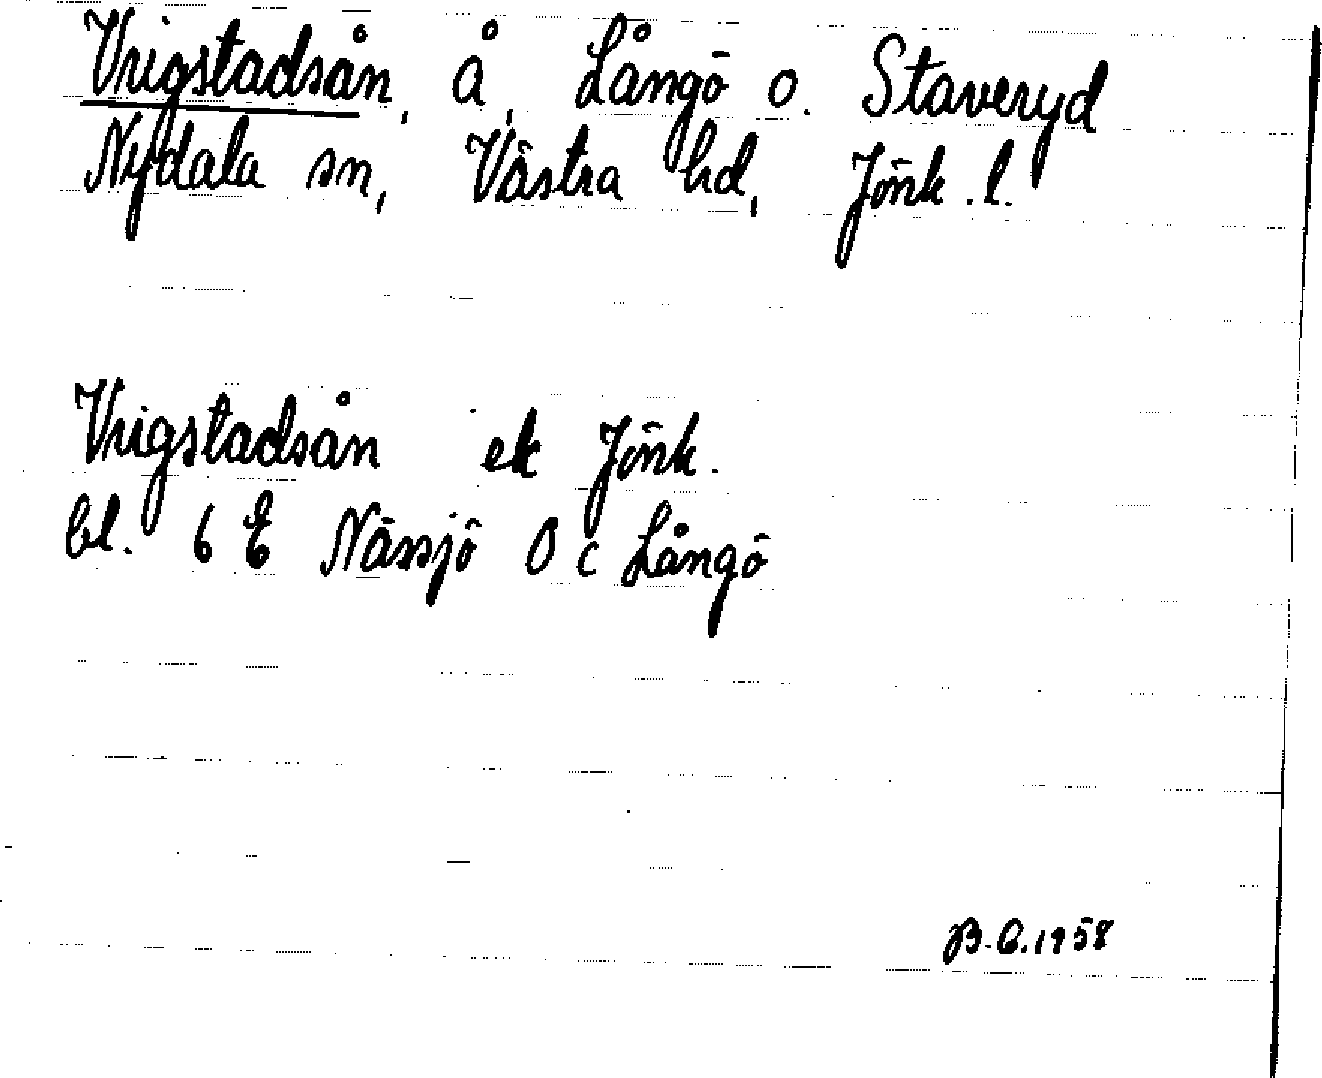 Vrigstadsån, å, Långö o. Staveryd
Nydala sn, Västra hd, Jönk. l.
Vrigstadsån ek Jönk.
bl. 6 E Nässjö 0 c Långö
B. E. 1958